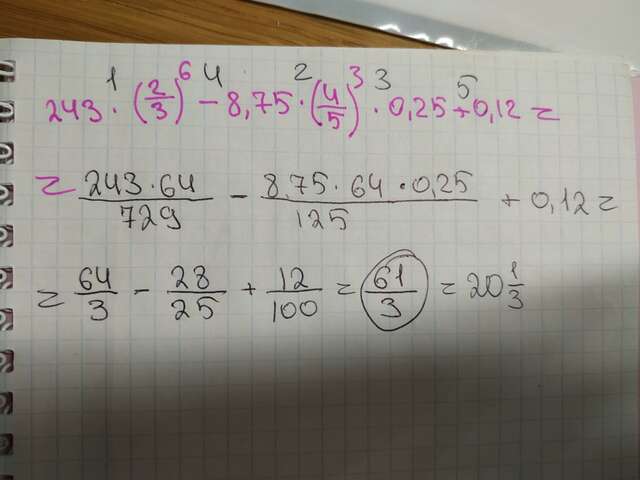 1 6 4 2 3 3 5
243 · (2/3)⁶ − 8,75 · (4/5)³ · 0,25 + 0,12 =
= 243·64/729 − 8,75 · 64 · 0,25/125 + 0,12 =
= 64/3 − 28/25 + 12/100 = 61/3 = 20 1/3